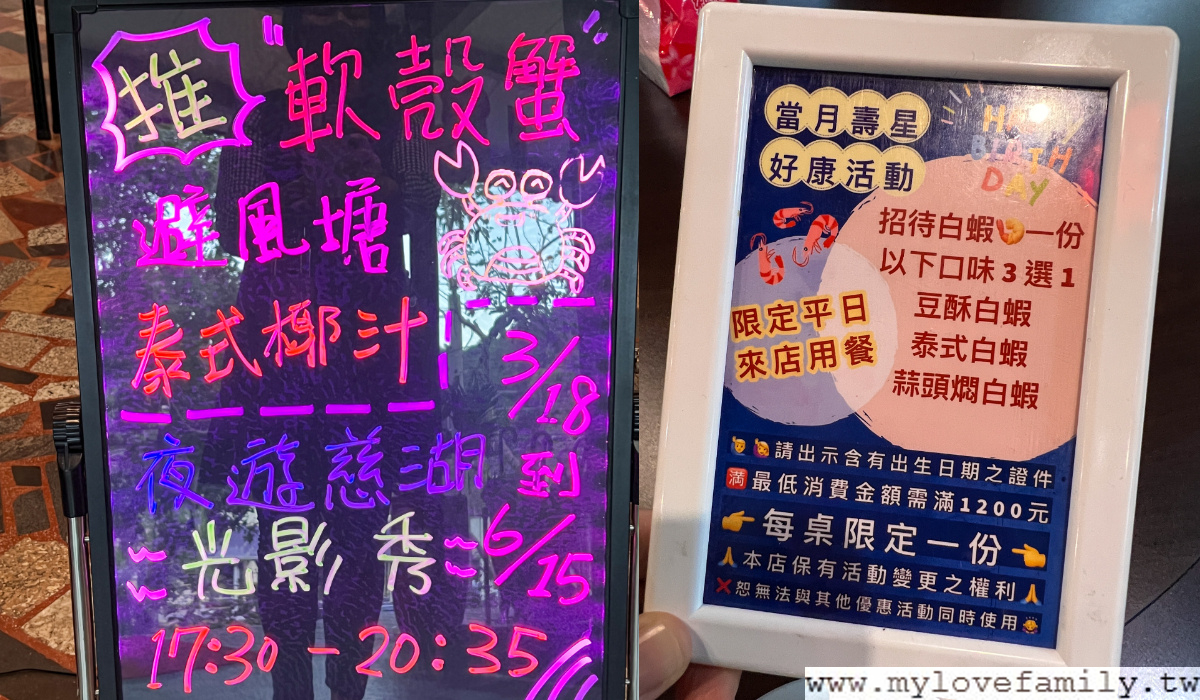 推 "軟殼蟹"
避風塘
泰式椰汁
3/18
夜遊慈湖
到
~光影秀~
6/15
17:30 - 20:35
當月壽星
好康活動
HAPPY
BIRTH
DAY
招待白蝦🍤一份
以下口味3選1
豆酥白蝦
泰式白蝦
蒜頭燜白蝦
限定平日
來店用餐
請出示含有出生日期之證件
🈵最低消費金額需滿1200元
👉每桌限定一份👈
🙏本店保有活動變更之權利🙏
❌恕無法與其他優惠活動同時使用
www.mylovefamily.tw